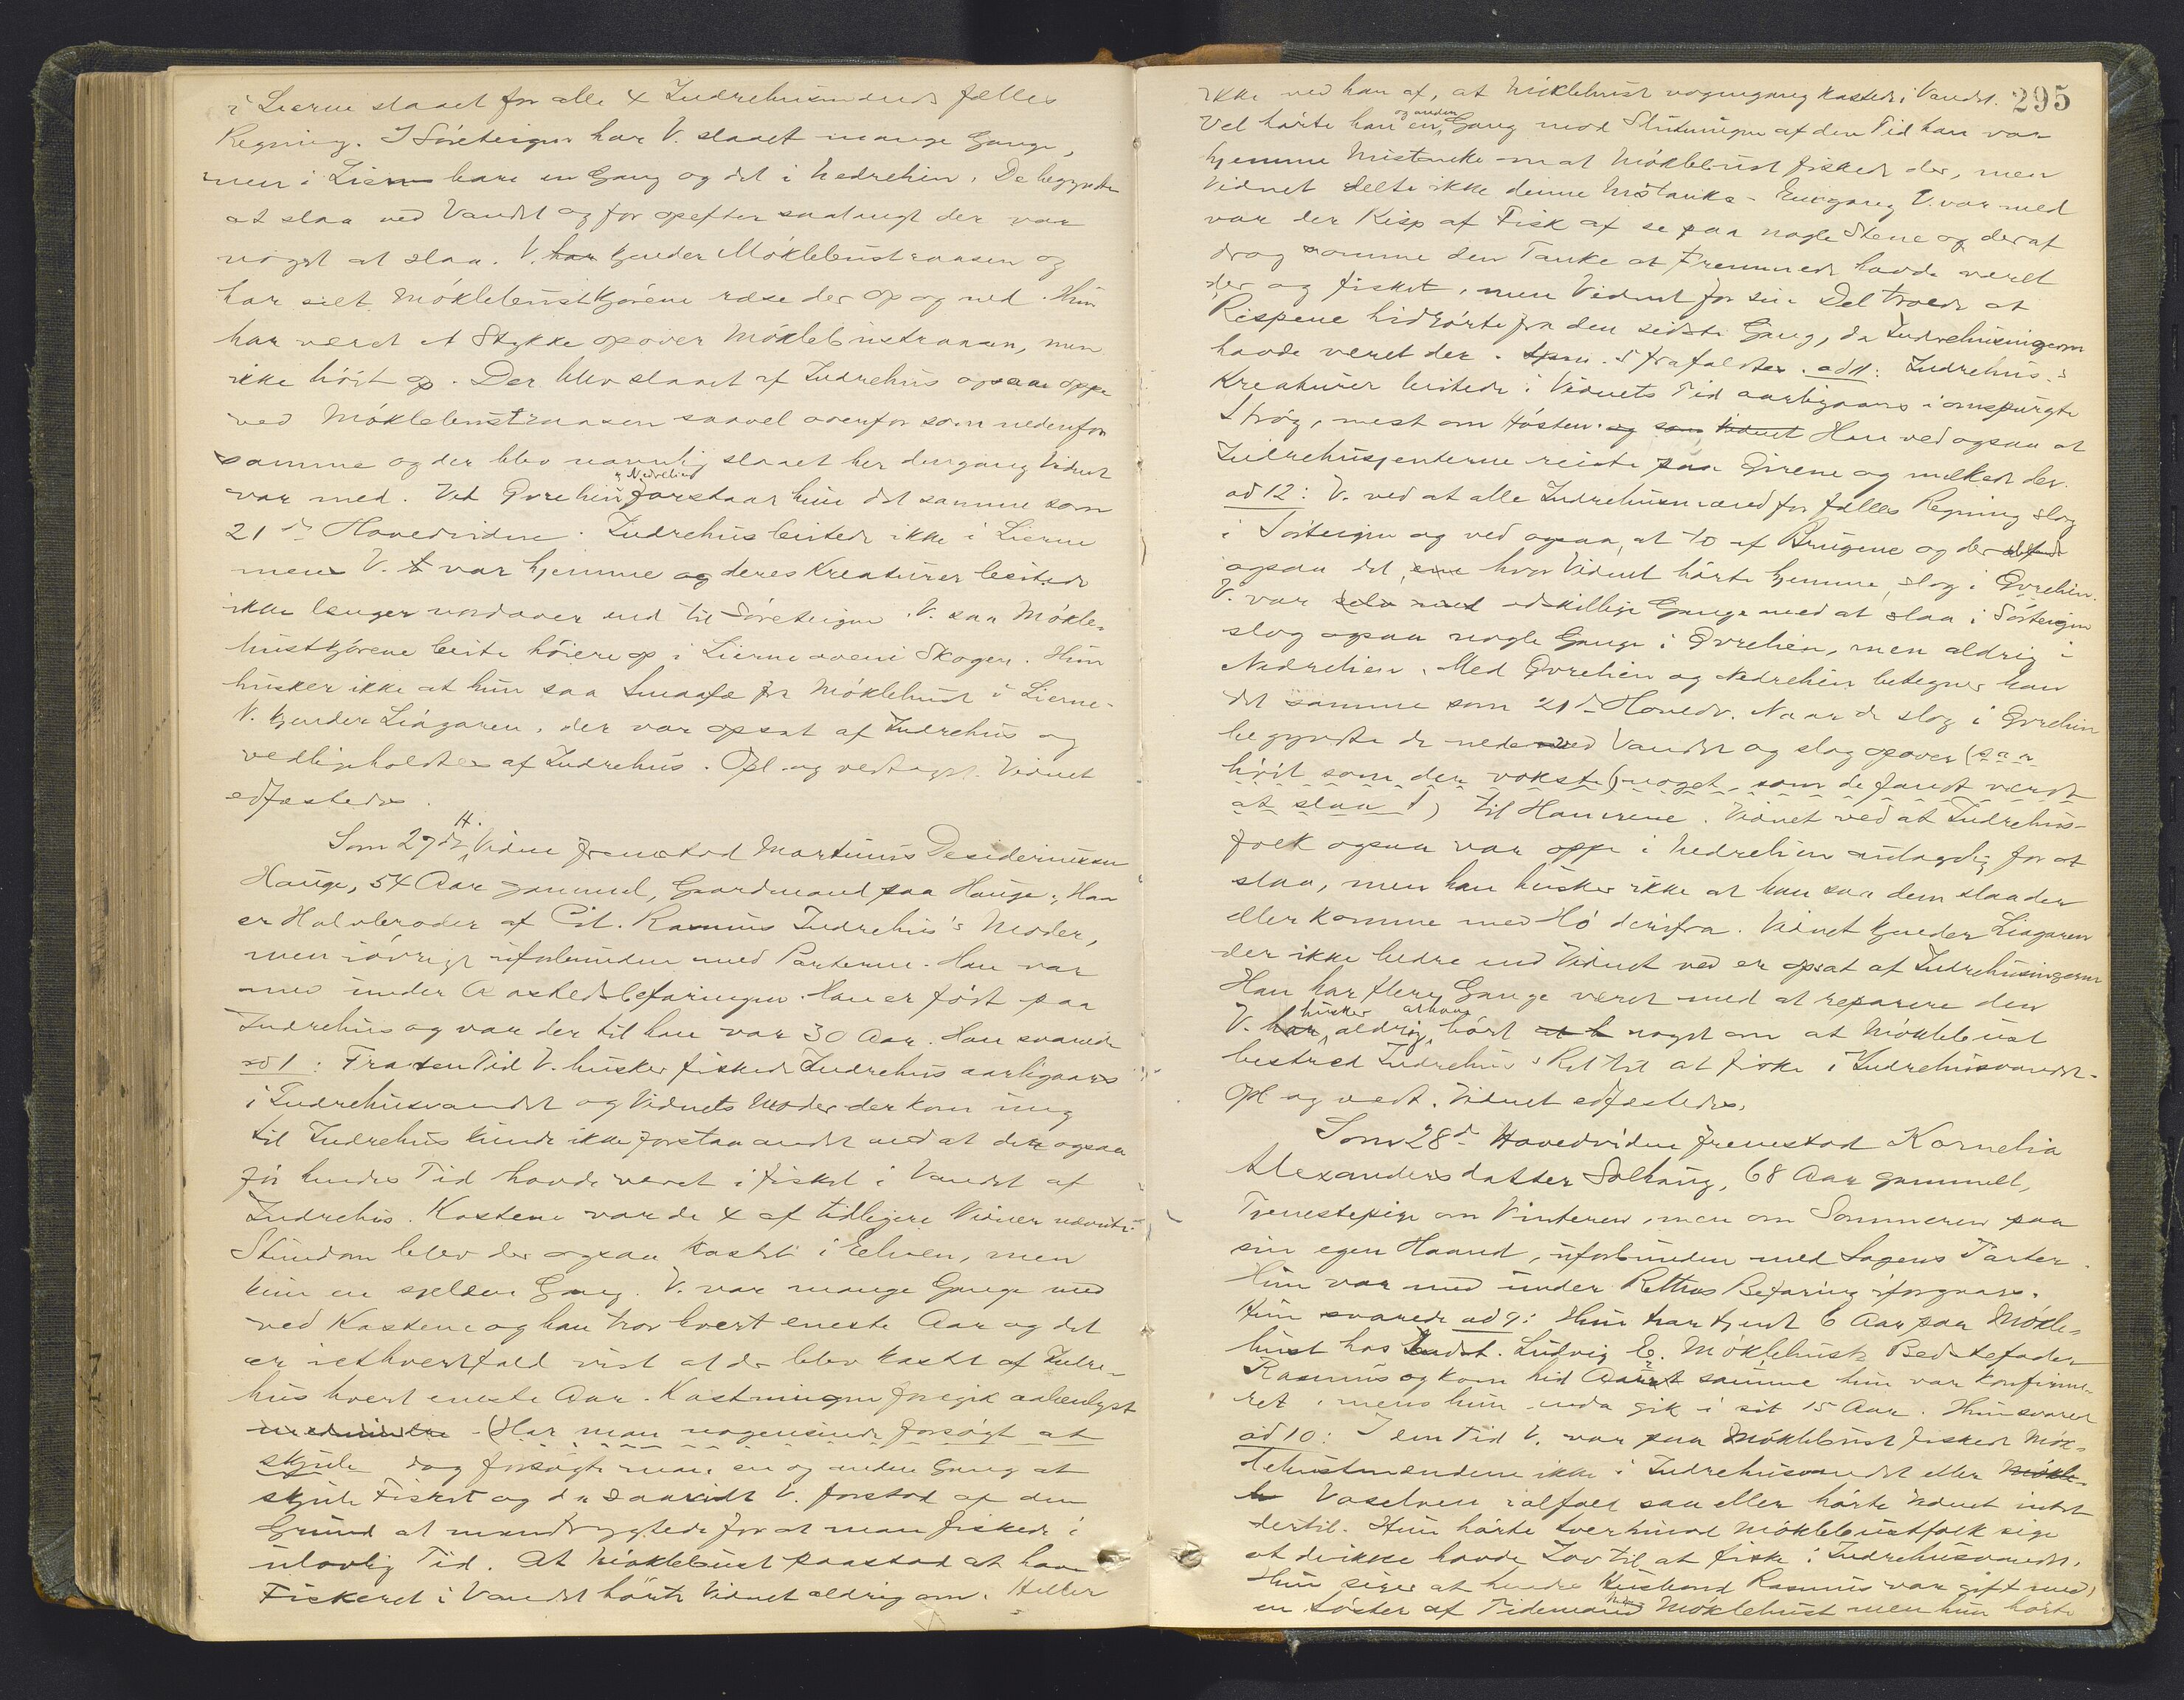 i Lierne slaaet for alle 4 Indrehusmænds fælles
Regning. I Söreteigen har V. slaaet mange Gange,
men i Lierne bare en Gang og det i Nedrelien. De begyndte
at slaa ved Vandet og for opefter saalangt der var
noget at slaa. V. har kjender Möklebustraasen og
har seet Möklebustkjörene ræse der op og ned. Hun
har været et Stykke opover Möklebustraasen, men
ikke höit op. Der blev slaaet af Indrehus ogsaa oppe
ved Möklebustraasen saavel ovenfor som nedenfor
samme og der blev navnlig slaaet her dengang Vidnet
var med. Ved Övrelien & Nedrelien forstaar hun det samme som
21de Hovedvidne. Indrehus beitede ikke i Lierne
mens V. var hjemme og deres Kreaturer beitede
ikke længer nordover end til Söreteigen. V. saa Mökle-
bustkjörene beite höiere op i Lierne oveni Skogen. Hun
husker ikke at hun saa Smaafæ fra Möklebust i Lierne.
V. kjender Liagaren, der var opsat af Indrehus og
vedligeholdtes af Indrehus. Opl. og vedtaget. Vidnet
edfæstedes.
Som 27de H. Vidne fremstod Martinus Desideriussen
Hauge, 54 Aar gammel, Gaardmand paa Hauge; Han
er Halvbroder af Cit. Rasmus Indrehus's Moder,
men iövrigt uforbunden med Parterne. Han var
med under Aastedsbefaringen. Han er födt paa
Indrehus og var der til han var 30 Aar. Han svarede
ad 1: Fra den Tid V. husker fiskede Indrehus aarligaars
i Indrehusvandet og Vidnets Moder der kom ung
til Indrehus kunde ikke forstaa andet end at der ogsaa
för hendes Tid havde været fisket i Vandet af
Indrehus. Kastene var de 4 af tidligere Vidner nævnte.
Stundom blev der ogsaa kastet i Elven, men
kun en sjelden Gang. V. var mange Gange med
ved Kastene og han tror hvert eneste Aar og det
er iethvertfald vist at der blev kastet af Indre-
hus hvert eneste Aar. Kastningen foregik aabenlyst
(Har man nogensinde forsögt at
skjule dog forsögte man en og anden Gang at
skjule Fisket og da saavidt V. forstod af den
Grund at man frygtede for at man fiskede i
ulovlig Tid. At Möklebust paastod at have
Fiskeret i Vandet hörte Vidnet aldrig om. Heller
295
ikke ved han af, at Möklebust nogengang kastede i Vandet.
Vel hörte han en og anden Gang mod Slutningen af den Tid han var
hjemme Mistanke om at Möklebust fiskede der, men
Vidnet delte ikke denne Mistanke. Engang V. var med
var der Risp af Fisk at se paa nogle Stene og deraf
drog somme den Tanke at Fremmede havde været
der og fisket, men Vidnet for sin Del troede at
Rispene hidrörte fra den sidste Gang, da Indrehusingerne
havde været der. Spm. 5 frafaldtes. ad 11: Indrehus's
Kreaturer beitede i Vidnets Tid aarligaars i omspurgte
Strög, mest om Hösten. og som Vidnet Han ved ogsaa at
Indrehusjenterne reiste paa Örene og melkede der.
ad 12: V. ved at alle Indrehusmænd for fælles Regning slog
i Sörteigen og ved ogsaa, at to af Brugene og der
ogsaa det ene hvor Vidnet hörte hjemme, slog i Övrelien.
V. var selv med adskillige Gange med at slaa i Sörteigen
slog ogsaa nogle Gange i Övrelien, men aldrig i
Nedrelien. Med Övrelien og Nedrelien betegner han
det samme som 21de Hovedv. Naar de slog i Övrelien
begyndte de nede ved Vandet og slog opover (saa
höit som der vokste) noget, som de fandt værdt
at slaa) til Hamrene. Vidnet ved at Indrehus-
folk ogsaa var oppe i Nedrelien for at
slaa, men han husker ikke at han saa dem slaa der
eller komme med Hö derifra. Vidnet kjender Liagaren
der ikke bedre end Vidnet ved er opsat af Indrehusingerne
Han har flere Gange været med at reparere den
V. har husker aldrig at have hört noget om at Möklebust
bestred Indrehus's Ret til at fiske i Indrehusvandet.
Opl. og vedt. Vidnet edfæstedes.
Som 28de Hovedvidne fremstod Kornelia
Alexandersdatter Solhaug, 68 Aar gammel,
Tjenestepige om Vinteren, men om Sommeren paa
sin egen Haand, uforbunden med Sagens Parter.
Hun var med under Rettens Befaring iforgaars.
Hun svarede ad 9: Hun har tjent 6 Aar paa Mökle-
bust hos Indst. Ludvig C. Möklebusts Bedstefader
Rasmus og kom hid Aaret samme hun var konfirme-
ret, mens hun enda gik i sit 15 Aar. Hun svarer
ad 10: I den Tid V. var paa Möklebust fiskede Mök-
lebustmændene ikke i Indrehusvandet eller Mökle-
Vaselven ialfald saa eller hörte Vidnet intet
dertil. Hun hörte tvertimod Möklebustfolk sige
at de ikke havde Lov til at fiske i Indrehusvandet.
Hun siger at hendes Husbond Rasmus var gift med
en Söster af Tidemand Möklebust men hun hörte